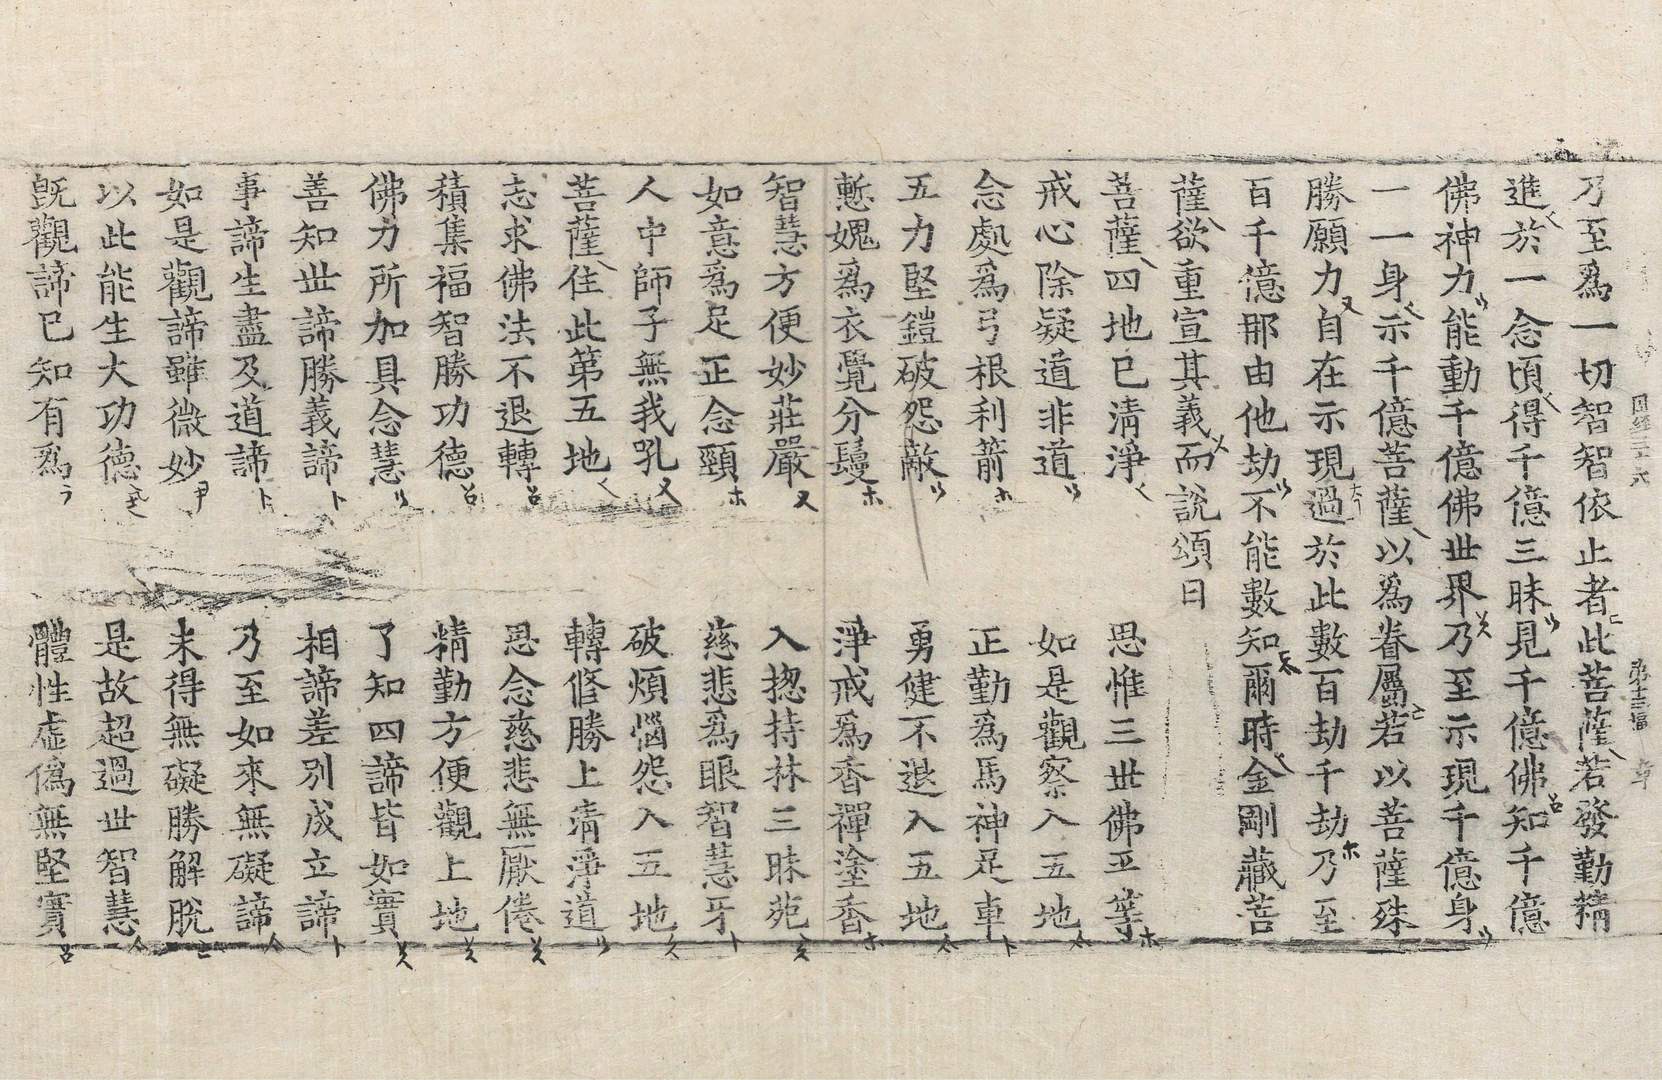 乃至爲一切智智依止者此菩薩若發勤精
進於一念頃得千億三昧見千億佛知千億
佛神力能動千億佛世界乃至示現千億身
一一身示千億菩薩以爲眷屬若以菩薩殊
勝願力自在示現過於此數百劫千劫乃至
百千億那由他劫不能數知爾時金剛藏菩
薩欲重宣其義而說頌曰
菩薩四地已清淨 思惟三世佛平等
戒心除疑道非道 如是觀察入五地
念處爲弓根利箭 正勤爲馬神足車
五力堅鎧破怨敵 勇健不退入五地
慙愧爲衣覺分鬘 淨戒爲香禪塗香
智慧方便妙莊嚴 入揔持林三昧苑
如意爲足正念頸 慈悲爲眼智慧牙
人中師子無我吼 破煩惱怨入五地
菩薩住此第五地 轉修勝上清淨道
志求佛法不退轉 思念慈悲無厭倦
積集福智勝功德 精勤方便觀上地
佛力所加具念慧 了知四諦皆如實
善知世諦勝義諦 相諦差別成立諦
事諦生盡及道諦 乃至如來無礙諦
如是觀諦雖微妙 未得無礙勝解脫
以此能生大功德 是故超過世智慧
旣觀諦已知有爲 體性虛僞無堅實